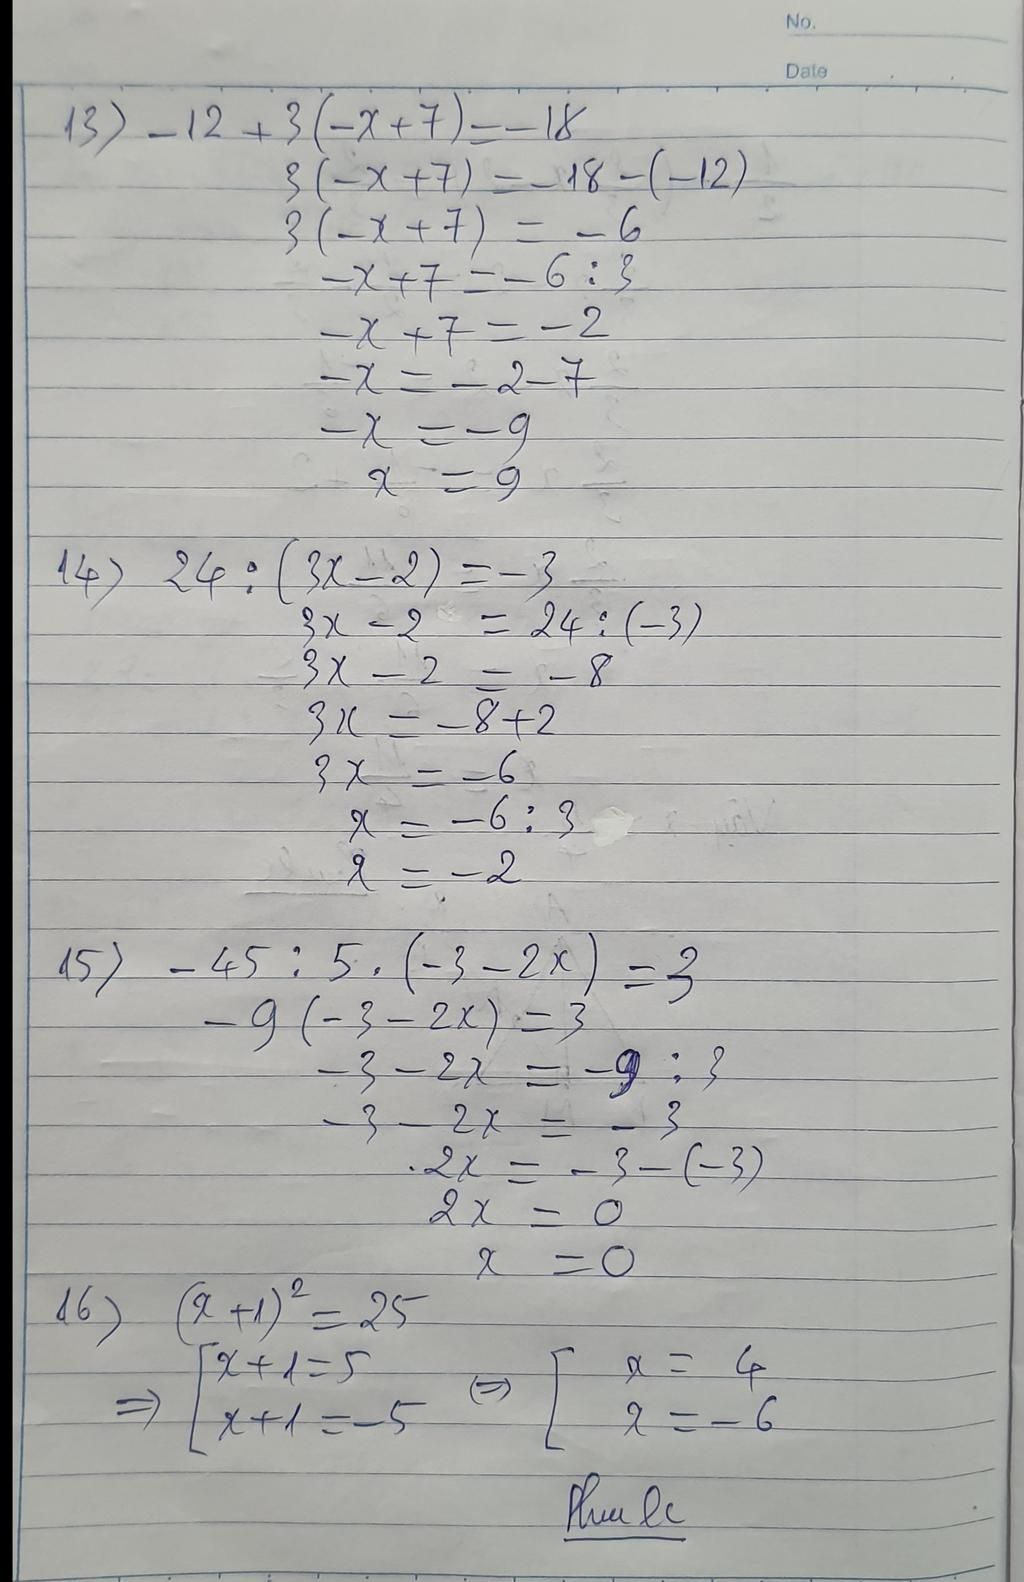 No.
Date
13) -12 + 3(-x+7) = -18
3(-x+7) = -18-(-12)
3(-x+7) = -6
-x+7 = -6 : 3
-x+7 = -2
-x = -2-7
-x = -9
x = 9
14) 24 : (3x-2) = -3
3x-2 = 24 : (-3)
3x-2 = -8
3x = -8+2
3x = -6
x = -6 : 3
x = -2
15) -45 : 5 . (-3-2x) = 3
-9(-3-2x) = 3
-3-2x = -9 : 3
-3-2x = -3
2x = -3-(-3)
2x = 0
x = 0
16) (x+1)² = 25
⇒ [ x+1 = 5 ⇔ [ x = 4
x+1 = -5 x = -6